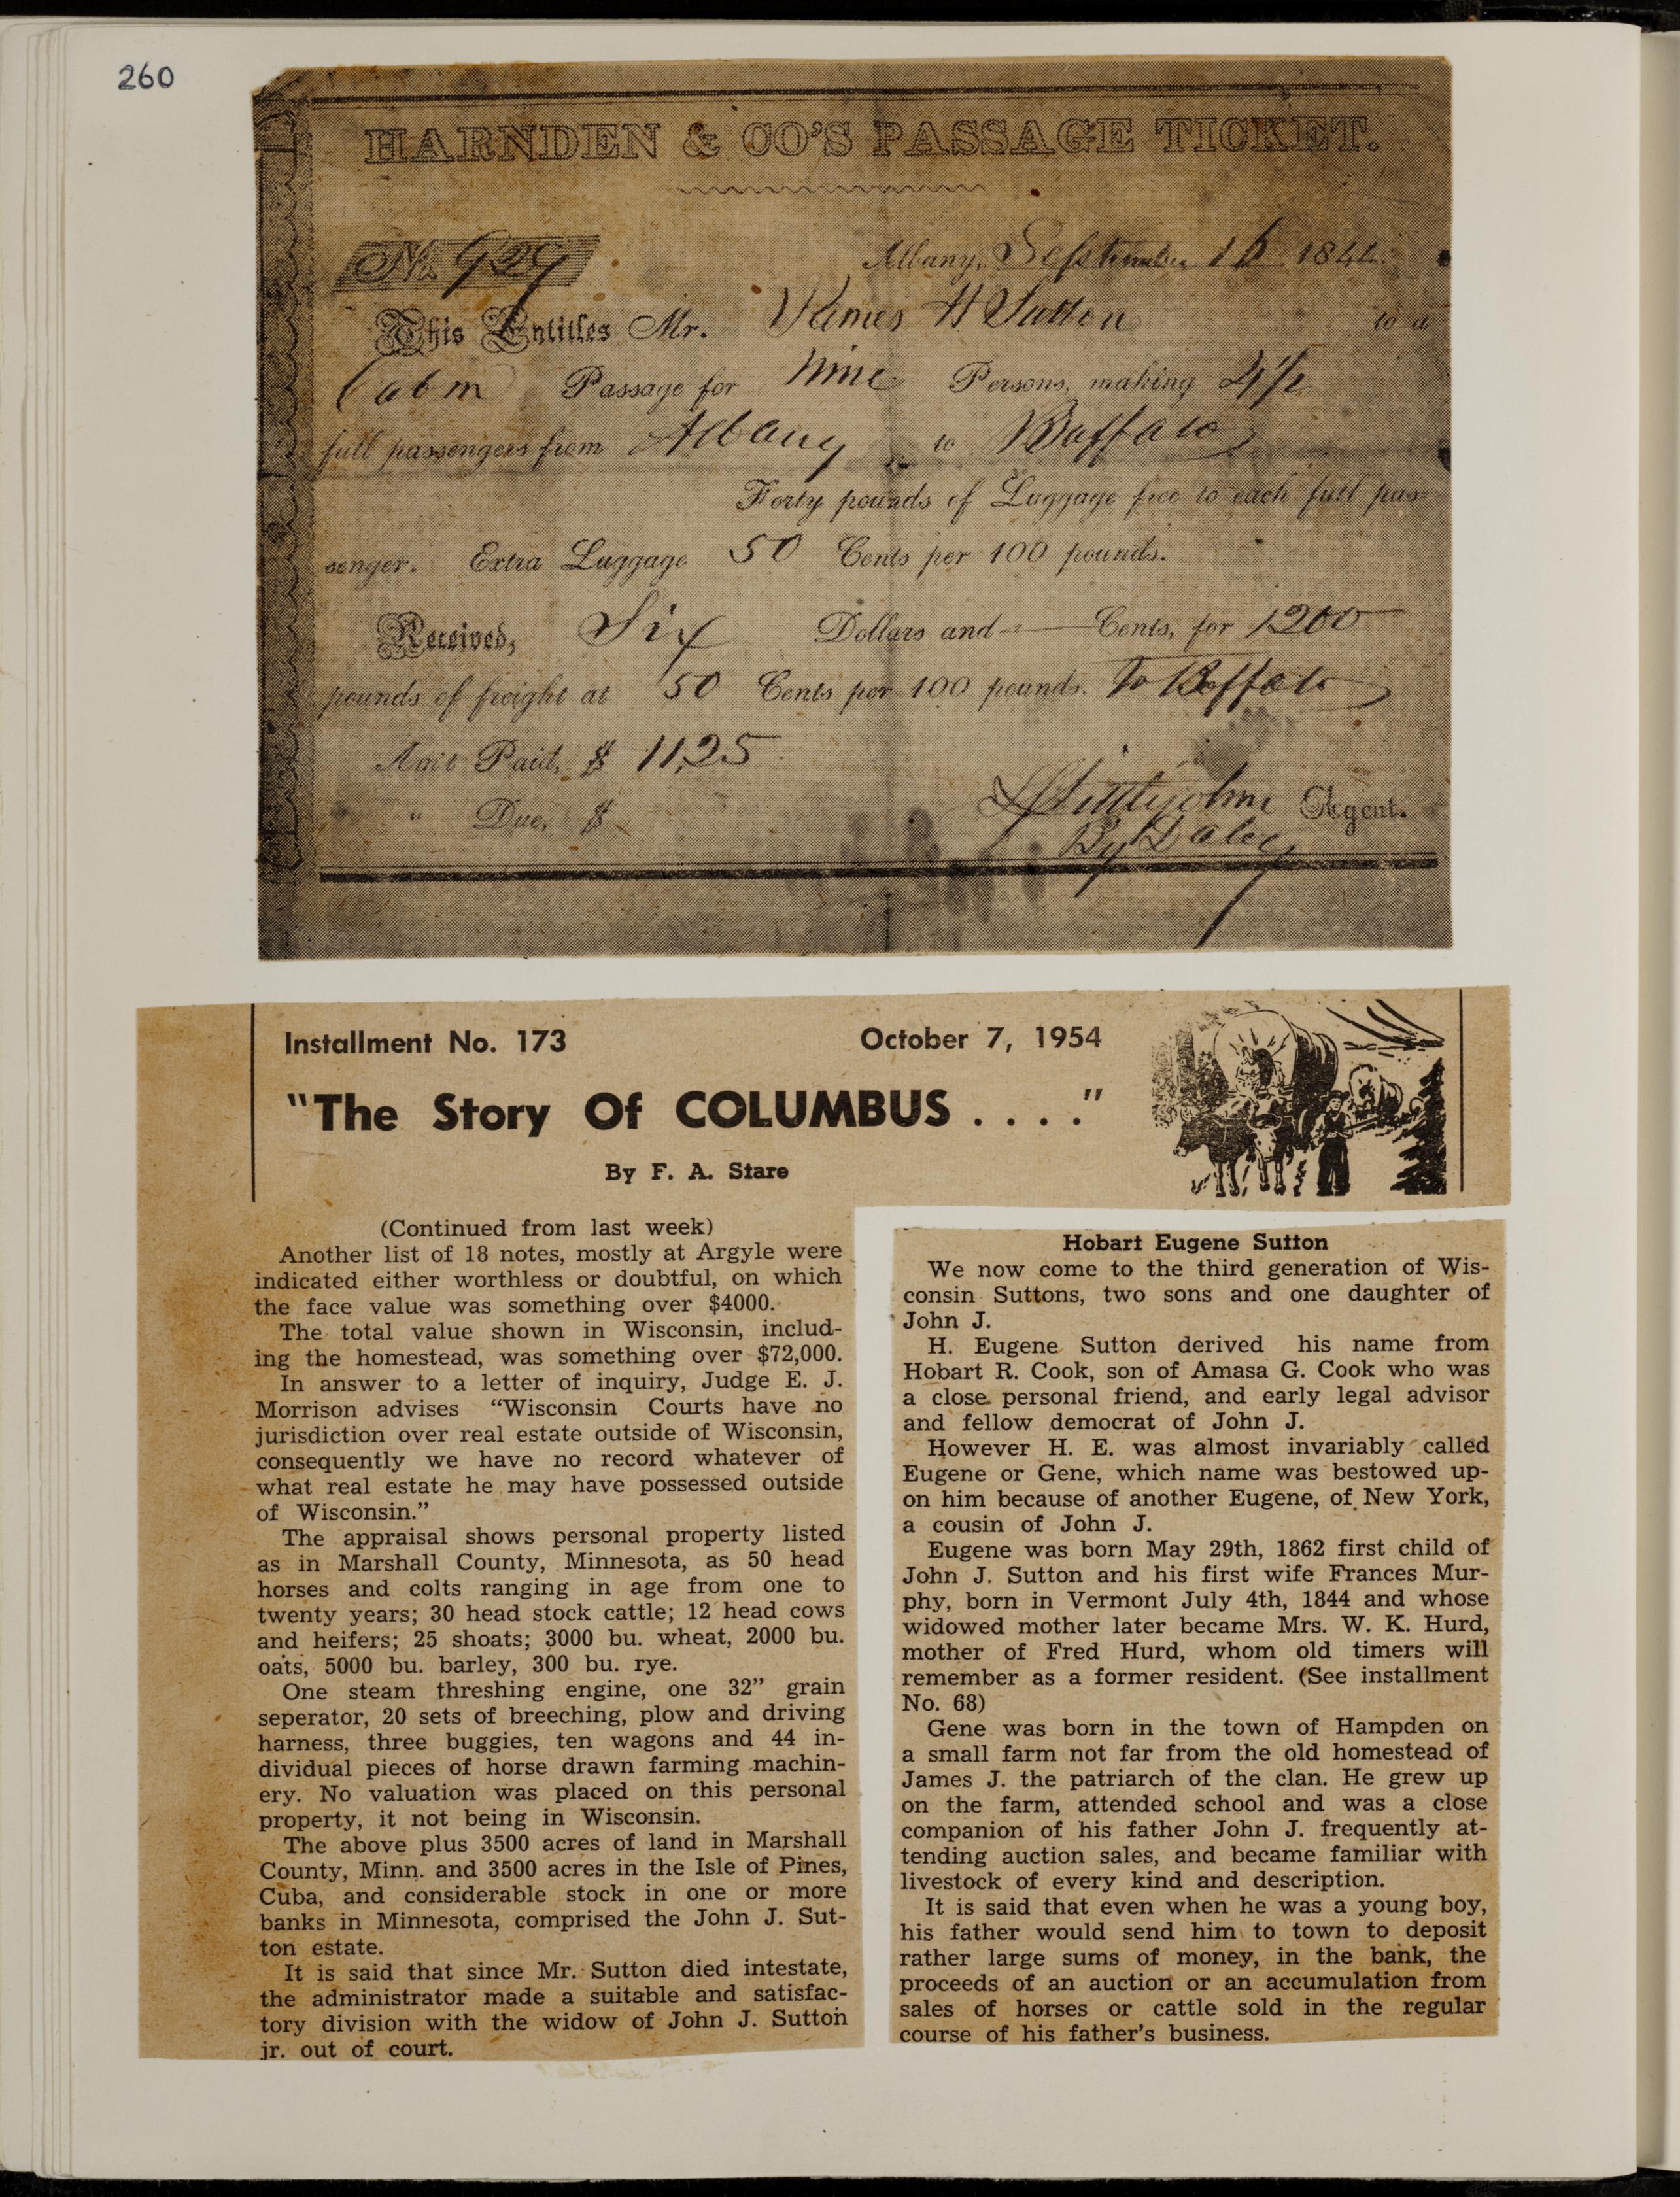 260
HARNDEN & CO'S PASSAGE TICKET.
No. 929
Albany, September 16 1844
This Entitles Mr. James H Sutton to a
Cabin Passage for Nine Persons, making 4 1/2
full passengers from Albany to Buffalo
Forty pounds of Luggage free to each full pas-
senger. Extra Luggage 50 Cents per 100 pounds.
Received, Six Dollars and — Cents, for 1200
pounds of freight at 50 Cents per 100 pounds. To Buffalo
Amt Paid, $ 11,25
" Due, $
Littlejohn Agent.
By Daley
Installment No. 173 October 7, 1954
"The Story Of COLUMBUS . . . ."
By F. A. Stare
(Continued from last week)
Another list of 18 notes, mostly at Argyle were
indicated either worthless or doubtful, on which
the face value was something over $4000.
The total value shown in Wisconsin, includ-
ing the homestead, was something over $72,000.
In answer to a letter of inquiry, Judge E. J.
Morrison advises "Wisconsin Courts have no
jurisdiction over real estate outside of Wisconsin,
consequently we have no record whatever of
what real estate he may have possessed outside
of Wisconsin."
The appraisal shows personal property listed
as in Marshall County, Minnesota, as 50 head
horses and colts ranging in age from one to
twenty years; 30 head stock cattle; 12 head cows
and heifers; 25 shoats; 3000 bu. wheat, 2000 bu.
oats, 5000 bu. barley, 300 bu. rye.
One steam threshing engine, one 32" grain
seperator, 20 sets of breeching, plow and driving
harness, three buggies, ten wagons and 44 in-
dividual pieces of horse drawn farming machin-
ery. No valuation was placed on this personal
property, it not being in Wisconsin.
The above plus 3500 acres of land in Marshall
County, Minn. and 3500 acres in the Isle of Pines,
Cuba, and considerable stock in one or more
banks in Minnesota, comprised the John J. Sut-
ton estate.
It is said that since Mr. Sutton died intestate,
the administrator made a suitable and satisfac-
tory division with the widow of John J. Sutton
jr. out of court.
Hobart Eugene Sutton
We now come to the third generation of Wis-
consin Suttons, two sons and one daughter of
John J.
H. Eugene Sutton derived his name from
Hobart R. Cook, son of Amasa G. Cook who was
a close personal friend, and early legal advisor
and fellow democrat of John J.
However H. E. was almost invariably called
Eugene or Gene, which name was bestowed up-
on him because of another Eugene, of New York,
a cousin of John J.
Eugene was born May 29th, 1862 first child of
John J. Sutton and his first wife Frances Mur-
phy, born in Vermont July 4th, 1844 and whose
widowed mother later became Mrs. W. K. Hurd,
mother of Fred Hurd, whom old timers will
remember as a former resident. (See installment
No. 68)
Gene was born in the town of Hampden on
a small farm not far from the old homestead of
James J. the patriarch of the clan. He grew up
on the farm, attended school and was a close
companion of his father John J. frequently at-
tending auction sales, and became familiar with
livestock of every kind and description.
It is said that even when he was a young boy,
his father would send him to town to deposit
rather large sums of money, in the bank, the
proceeds of an auction or an accumulation from
sales of horses or cattle sold in the regular
course of his father's business.